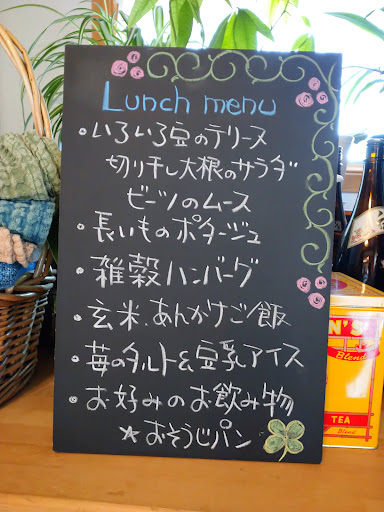 Lunch menu
・いろいろ豆のテリーヌ
切り干し大根のサラダ
ビーツのムース
・長いものポタージュ
・雑穀ハンバーグ
・玄米.あんかけご飯
・苺のタルト&豆乳アイス
・お好みのお飲み物
☆おそうじパン
N'S
Blend
TEA
Blend